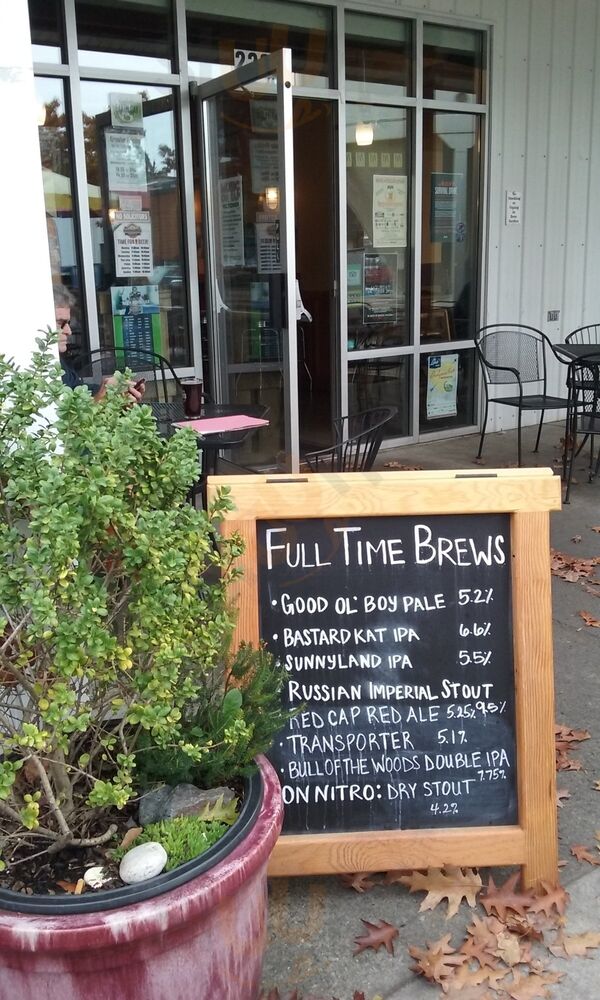 NO SOLICITORS
TIME FOR A BEER!
FULL TIME BREWS
• GOOD OL' BOY PALE 5.2%
• BASTARD KAT IPA 6.6%
• SUNNYLAND IPA 5.5%
RUSSIAN IMPERIAL STOUT 9.5%
RED CAP RED ALE 5.25%
• TRANSPORTER 5.1%
• BULL OF THE WOODS DOUBLE IPA 7.75%
ON NITRO: DRY STOUT
4.2%